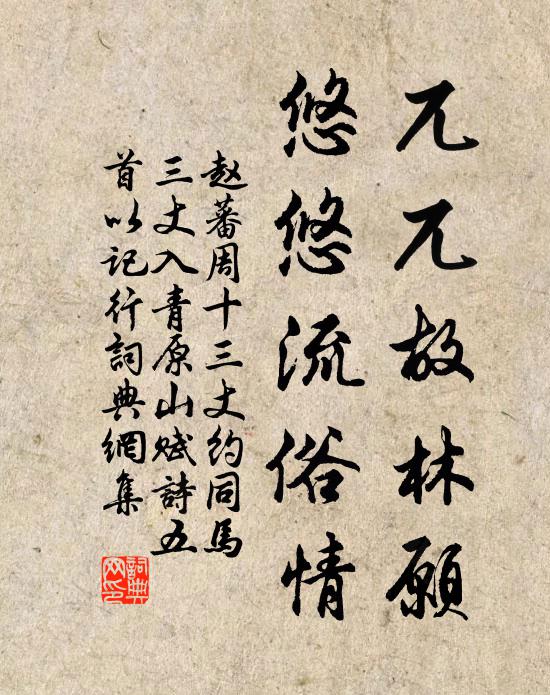 兀兀故林願
悠悠流俗情
赵蕃周十三丈约同馬
三丈入青原山赋詩五
首以记行詞典網集
詞典
网印